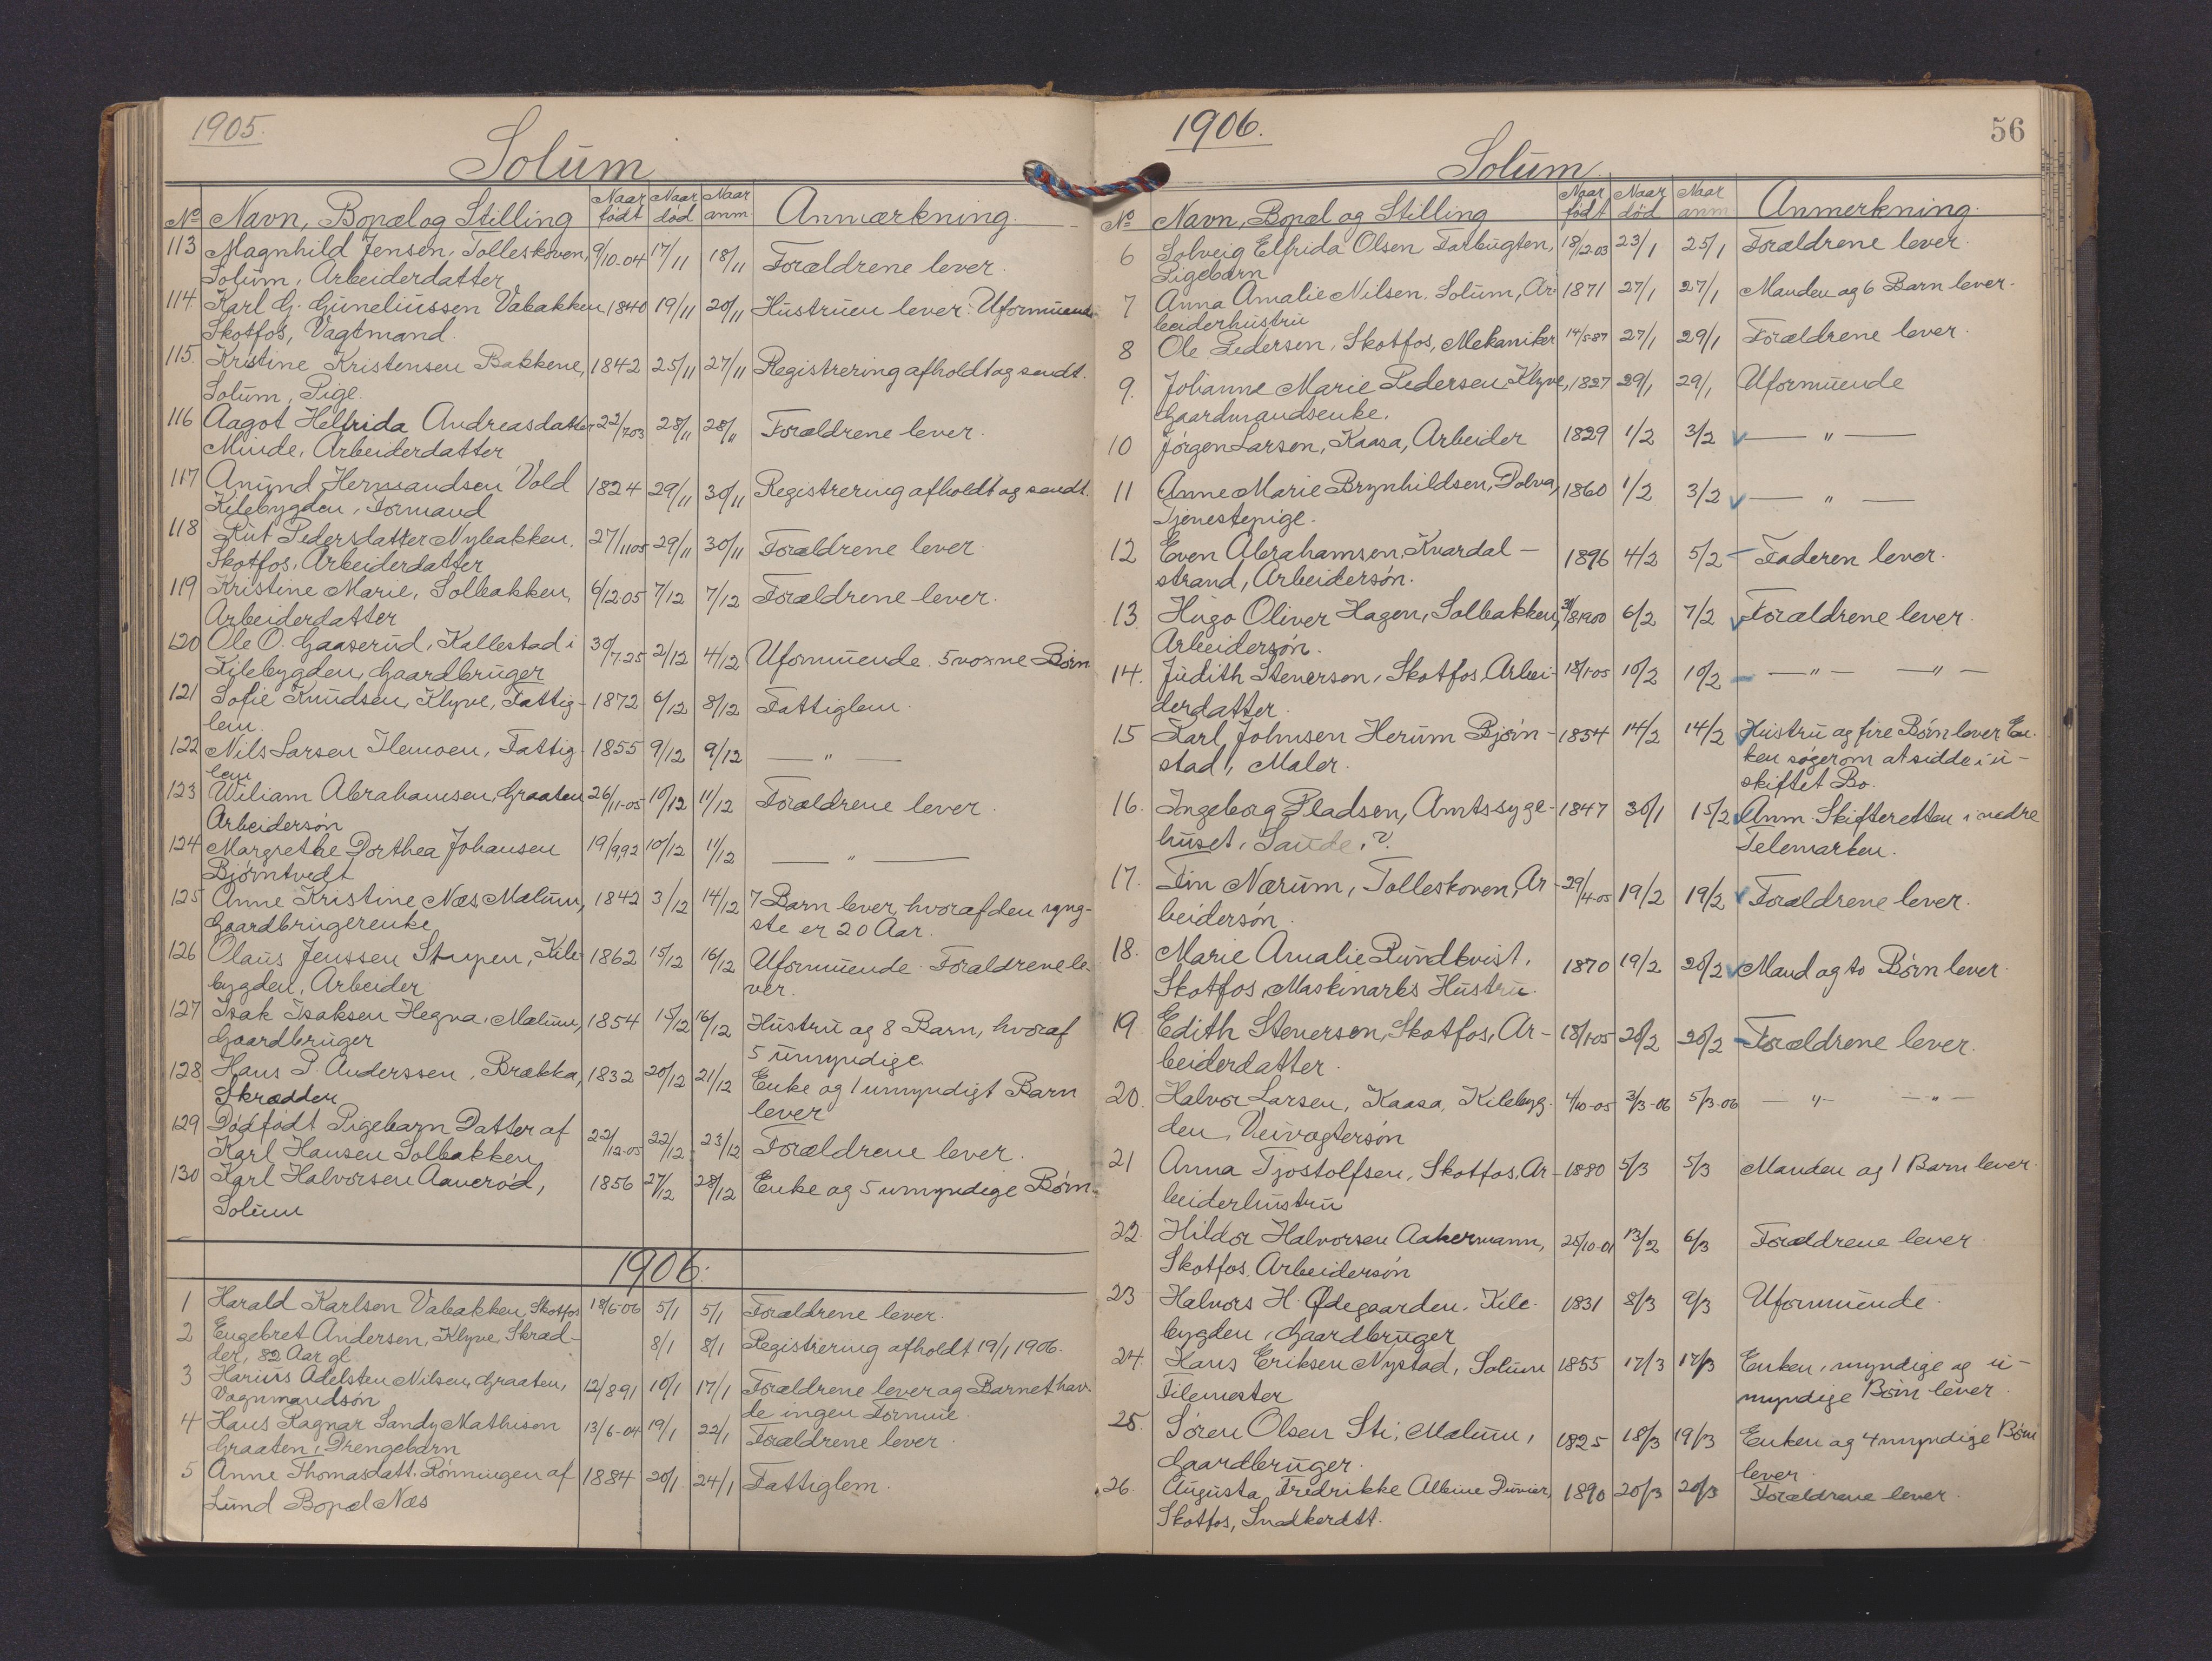 1905.
Solum
No Navn, Bopæl og Stilling Naar født Naar død Naar anm. Anmærkning.
113 Magnhild Jensen, Tolleskoven, 9/10-04 17/11 18/11 Forældrene lever.
Solum, Arbeiderdatter
114 Karl G. Guneliussen Vabakken 1840 19/11 20/11 Hustruen lever. Uformuende
Skotfos, Vagtmand.
115. Kristine Kristensen Bakkene, 1842 25/11 27/11 Registrering afholdt og sendt.
Solum, Pige.
116 Aagot Helfrida Andreasdatter 22/7 03 28/11 28/11 Forældrene lever.
Minde, Arbeiderdatter
117 Amund Hermandsen Vold 1824 29/11 30/11 Registrering afholdt og sendt.
Kilebygden, Formand
118 Rut Pedersdatter Nybakken. 27/11 05 29/11 30/11 Forældrene lever
Skotfos, Arbeiderdatter
119 Kristine Marie, Solbakken, 6/12 05 7/12 7/12 Forældrene lever.
Arbeiderdatter
120 Ole O. Gaaserud, Kallestad i 30/7-25 2/12 4/12 Uformuende. 5 voxne Børn
Kilebygden, Gaardbruger
121 Sofie Knudsen, Klyve, Fattig- 1872 6/12 8/12 Fattiglem.
lem.
122 Nils Larsen Ilemoen, Fattig- 1855 9/12 9/12 — " —
lem
123 Wiliam Abrahamsen, Graaten 26/11-05 10/12 11/12 Forældrene lever.
Arbeidersøn
124 Margrethe Dorthea Johansen 19/9 92 10/12 11/12 — " —
Bjørntvedt
125 Anne Kristine Næs, Mælum, 1842 3/12 14/12 7 Barn lever, hvoraf den yng-
Gaardbrugerenke ste er 20 Aar.
126 Olaus Jenssen Stupen, Kile- 1862 15/12 16/12 Uformuende. Forældrene le-
bygden, Arbeider ver.
127 Isak Isaksen Hegna, Mælum, 1854 15/12 16/12 Hustru og 8 Barn, hvoraf
Gaardbruger 5 umyndige.
128 Hans P. Anderssen, Brækka, 1832 20/12 21/12 Enke og 1 umyndigt Barn
Skrædder lever
129 Dødfødt Pigebarn Datter af 22/12-05 22/12 23/12 Forældrene lever.
Karl Hansen Solbakken
130 Karl Halvorsen Aaverød, 1856 27/12 28/12 Enke og 5 umyndige Børn.
Solum
1906.
1 Harald Karlsen Vabakken, Skotfos 18/6-06 5/1 5/1 Forældrene lever.
2 Engebret Andersen, Klyve Skræd- 8/1 8/1 Registrering afholdt 19/1 1906.
der, 82 Aar gl.
3 Harius Adelsten Nilsen, Graaten, 12/8 91 10/1 17/1 Forældrene lever og Barnet hav-
Vognmandsøn de ingen Formue.
4 Hans Ragnar Sandy Mathison 13/6-04 19/1 22/1 Forældrene lever.
Graaten, Drengebarn
5 Anne Thomasdatt. Rønningen af 1884 20/1 24/1 Fattiglem.
Lund Bopæl Næs
1906.
56
Solum
No Navn, Bopæl og Stilling Naar født Naar død Naar anm Anmerkning.
6 Solveig Elfrida Olsen Farbugten, 18/12-03 23/1 25/1 Forældrene lever.
Pigebarn
7 Anna Amalie Nilsen. Solum, Ar- 1871 27/1 27/1 Manden og 6 Barn lever.
beiderhustru
8 Ole Pedersen, Skotfos, Mekaniker 14/5-87 27/1 29/1 Forældrene lever.
9. Johanne Marie Pedersen Klyve, 1827 29/1 29/1 Uformuende
Gaardmandsenke.
10 Jørgen Larsen, Kaasa, Arbeider 1829 1/2 3/2 — " —
11 Anne Marie Brynhildsen, Dolva, 1860 1/2 3/2 — " —
Tjenestepige.
12 Even Abrahamsen, Kvardal- 1896 4/2 5/2 Faderen lever.
strand, Arbeidersøn.
13 Hugo Oliver Hagen, Solbakken, 31/8 1900 6/2 7/2 Forældrene lever.
Arbeidersøn.
14. Judith Stenersen, Skotfos, Arbei- 18/1-05 10/2 10/2 — " — — " —
derdatter.
15 Karl Johnsen Herum Bjørn- 1854 14/2 14/2 Hustru og fire Børn lever En-
stad, Maler. ken søger om at sidde i u-
skiftet Bo.
16. Ingeborg Pladsen, Amtssyge- 1847 30/1 15/2 Anm. Skifteretten i nedre
huset, Saude, ? Telemarken.
17. Fin Nærum, Tolleskoven, Ar- 29/4-05 19/2 19/2 Forældrene lever.
beidersøn.
18. Marie Amalie Rundkvist, 1870 19/2 20/2 Mand og to Børn lever.
Skotfos, Maskinarbs Hustru.
19 Edith Stenersen, Skotfos, Ar- 18/1-05 20/2 20/2 Forældrene lever.
beiderdatter.
20. Halvor Larsen, Kaasa, Kilebyg- 4/10-05 3/3-06 5/3-06 — " — — " —
den, Veivogtersøn
21 Anna Tjostolfsen, Skotfos, Ar- 1880 5/3 5/3 Manden og 1 Barn lever.
beiderhustru
22. Hildor Halvorsen Aakermann, 25/10-01 13/2 6/3 Forældrene lever
Skotfos, Arbeidersøn
23 Halvors H. Ødegaarden, Kile- 1831 8/3 9/3 Uformuende.
bygden, Gaardbruger
24. Hans Eriksen Nystad, Solum 1855 17/3 17/3 Enken, myndige og u-
Filemester myndige Børn lever.
25. Søren Olsen Sti, Mælum, 1825 18/3 19/3 Enken og 4 myndige Børn
Gaardbruger. lever.
26. Augusta Fredrikke Albine Duvier, 1890 20/3 20/3 Forældrene lever.
Skotfos, Snedkerdtt.